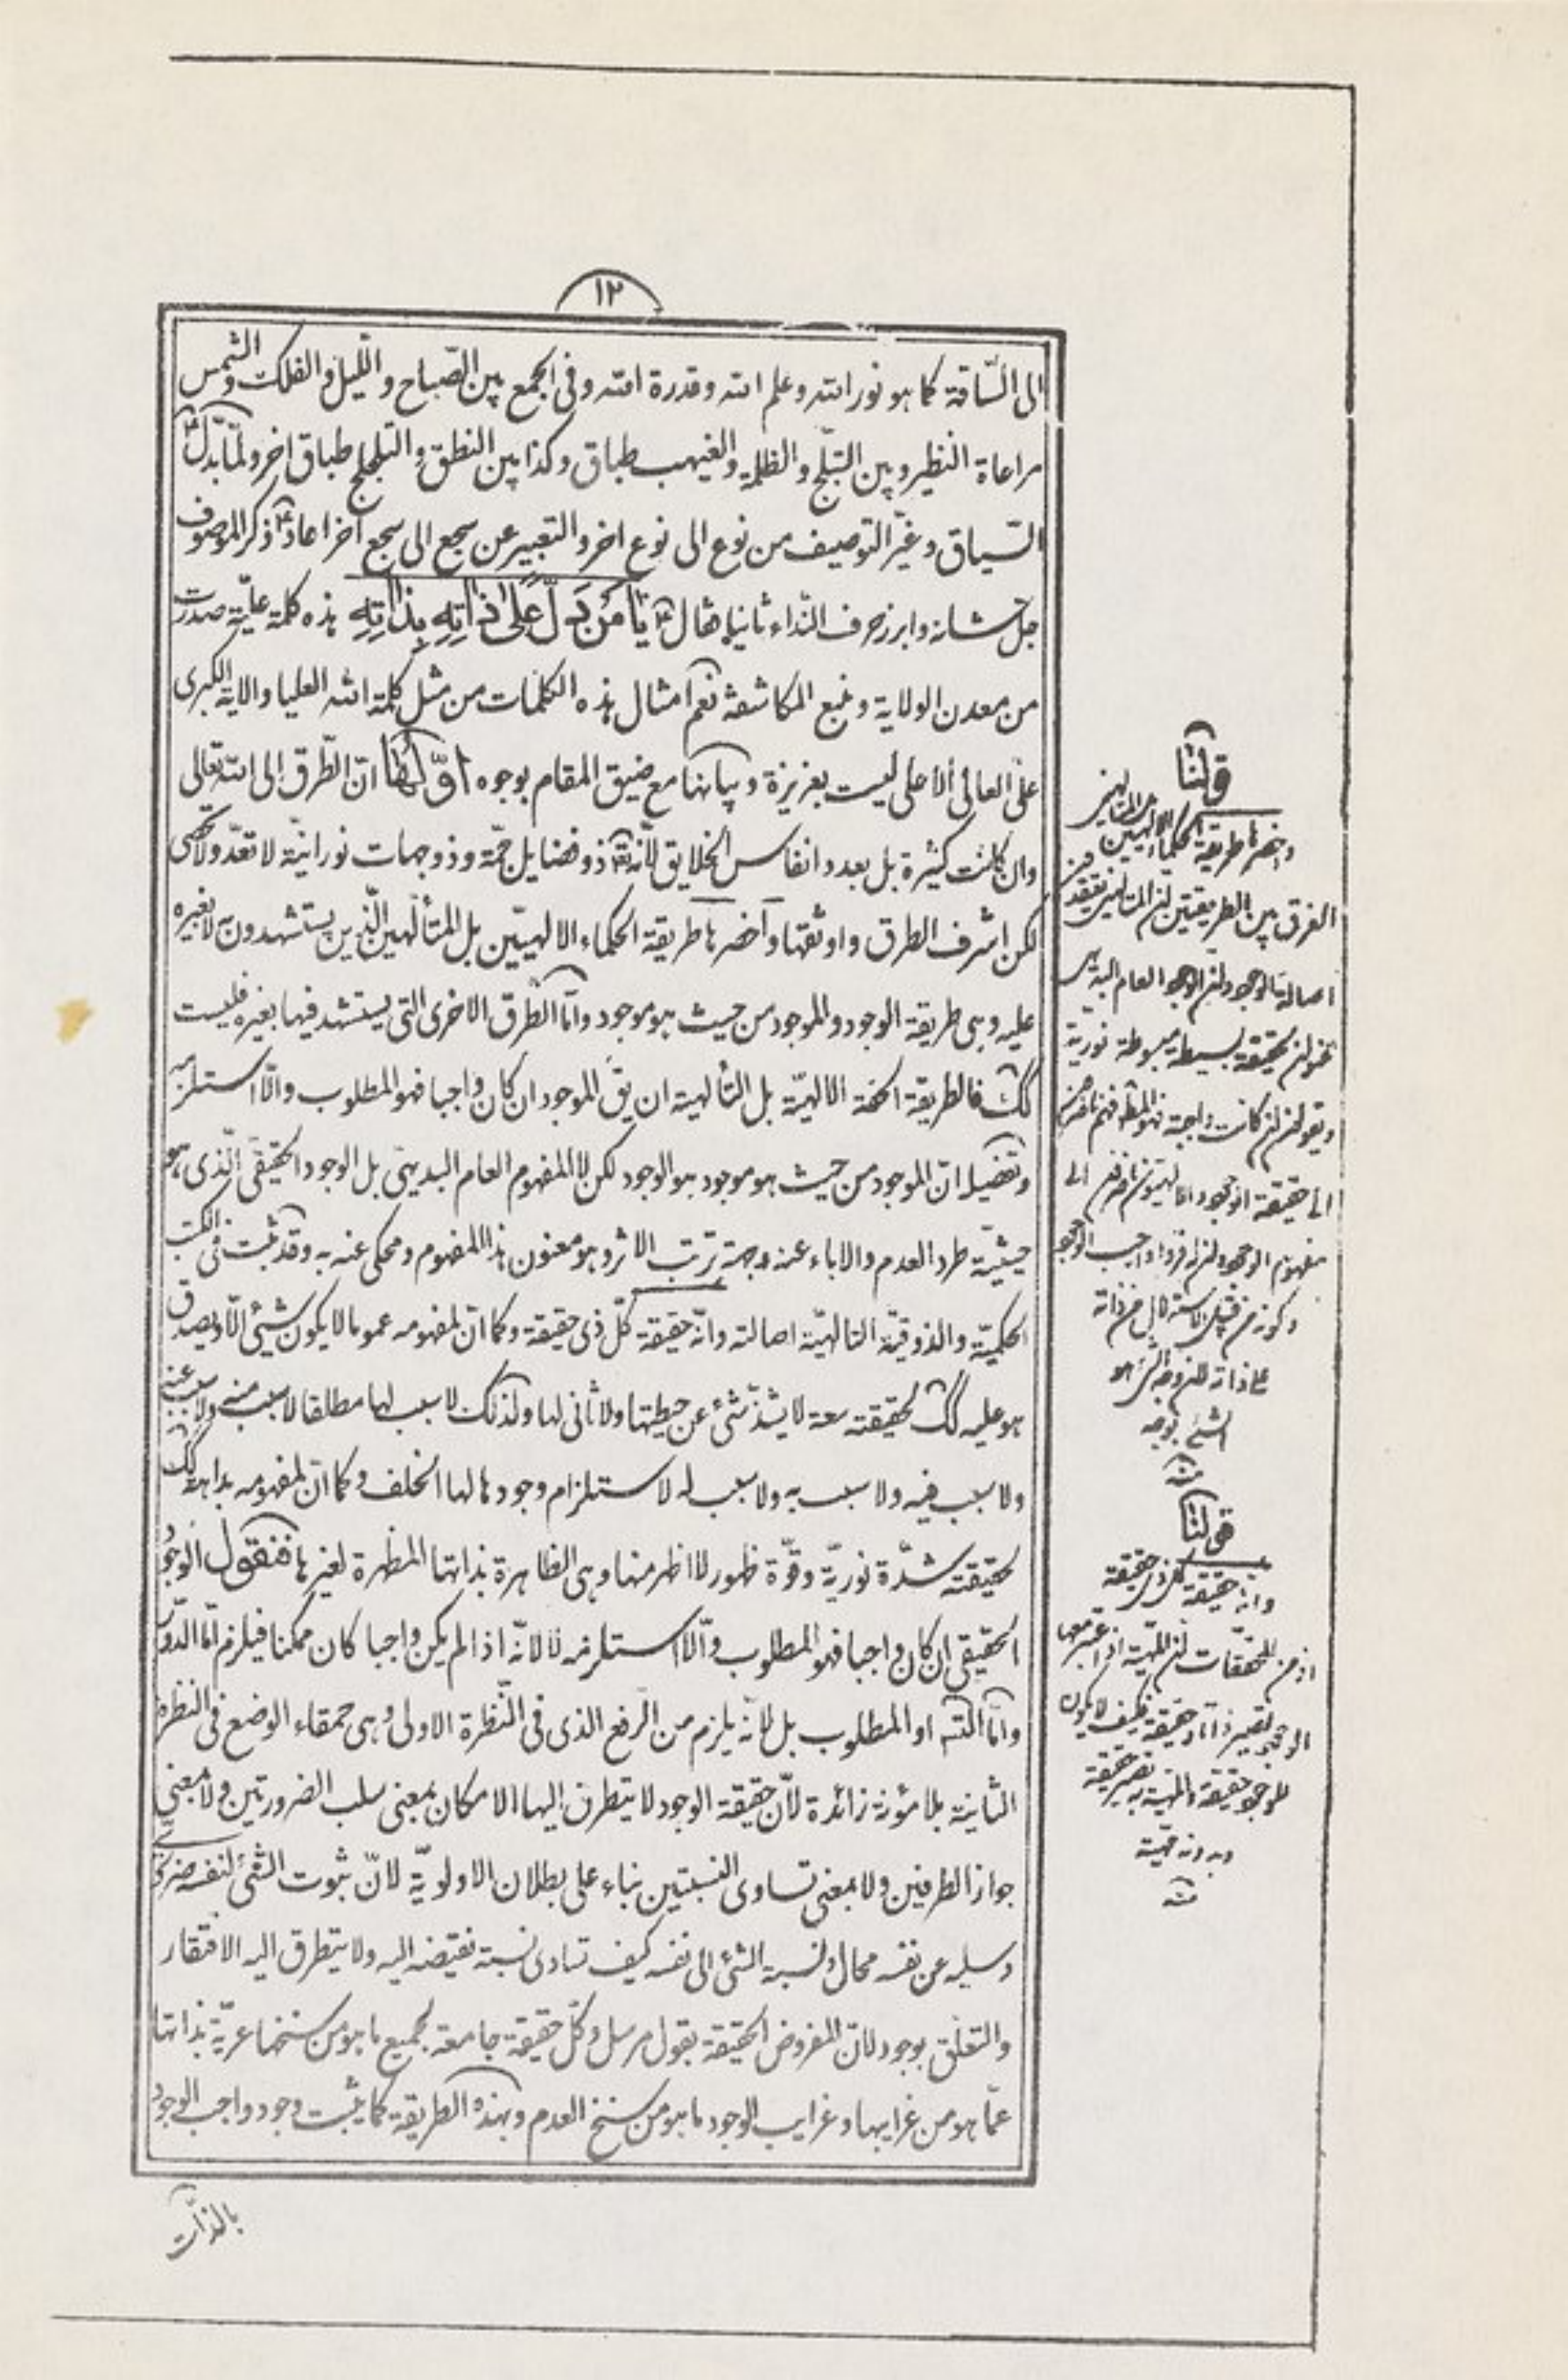 ١٢
الى السّاقة كما هو نور الله وعلم الله وقدرة الله وفى الجمع بين الصّباح واللّيل والفلك والشمس
مراعاة النظير وبين التبلّج والظلمة والغيهب طباق وكذا بين النطق والتلجلج طباق اخر ولمّا بدّل ع
السّياق وغيّر التوصيف من نوع الى نوع اخر والتعبير عن سجع الى سجع اخر اعاد ع ذكر الموصوف
جل شانه وابرز حرف النّداء ثانيا فقال ع يٰا مَنْ دَلَّ عَلىٰ ذٰاتِهِ بِذٰاتِهِ هذه كلمة عليّة صدرت
من معدن الولاية ومنبع المكاشفة نعم امثال هذه الكلمات من مثل كلمة الله العليا والاية الكبرى
علىّ العالى الاعلى ليست بعزيزة وبيانها مع ضيق المقام بوجوه اوّلها انّ الطّرق الى الله تعالى
وان كانت كثيرة بل بعدد انفاس الخلايق لانّه تع ذو فضايل جمّة وذو جهات نورانيّة لا تعدّ ولا تحصى
لكن اشرف الطرق واوثقها واخصرها طريقة الحكماء الالهيّين بل المتألّهين الّذين يستشهدون به لا بغيره
عليه وهى طريقة الوجود والموجود من حيث هو موجود وامّا الطّرق الاخرى التى يستشهد فيها بغيره فليست
كك فالطريقة الحقة الالهيّة بل التألهية ان يق الموجود ان كان واجبا فهو المطلوب والّا استلزمه
وتفصيله انّ الموجود من حيث هو موجود هو الوجود لكن لا المفهوم العام البديهى بل الوجود الحقيقى الّذى هو
حيثيّة طرد العدم والاباء عنه وجهة ترتب الاثر وهو معنون هذا المفهوم ومحكى عنه به وقد ثبت فى الكتب
الحكميّة والذوقية التالهيّة اصالته وانّه حقيقة كلّ ذى حقيقة وكما انّ لمفهومه عموما لا يكون شيئ الّا ويصدق
هو عليه كك لحقيقته سعة لا يشذّ شئ عن حيطتها ولا ثانى لها ولذلك لا سبب لها مطلقا لا سبب منه ولا سبب عنه
ولا سبب فيه ولا سبب به ولا سبب له لاستلزام وجود ما لها الخلف وكما انّ لمفهومه بداهة كك
لحقيقته شدّة نوريّة وقوّة ظهور لا اظهر منها وهى الظاهرة بذاتها المظهرة لغيرها فنقول الوجود
الحقيقى ان كان واجبا فهو المطلوب والّا استلزمه لا لانّه اذا لم يكن واجبا كان ممكنا فيلزم امّا الدّور
وامّا التّسه او المطلوب بل لانّه يلزم من الرّفع الذى فى النّظرة الاولى وهى حمقاء الوضع فى النظرة
الثانية بلا مؤنة زائدة لانّ حقيقة الوجود لا يتطرق اليها الامكان بمعنى سلب الضرورتين ولا بمعنى
جواز الطرفين ولا بمعنى تساوى النسبتين بناء على بطلان الاولويّة لانّ ثبوت الشئ لنفسه ضرورى
وسلبه عن نفسه محال ونسبة الشئ الى نفسه كيف تساوى نسبة نقيضه اليه ولا يتطرق اليه الافتقار
والتعلّق بوجود لانّ المفروض الحقيقة بقول مرسل وكلّ حقيقة جامعة لجميع ما هو من سنخها عريّة بذاتها
عمّا هو من غرايبها وغرايب الوجود ما هو من سنخ العدم وبهذه الطريقة كما يثبت وجود واجب الوجود
بالذّات
قولنا
واخصرها طريقة الحكماء الالهيين
الفرق بين الطريقتين
اصالة الوجود الوجود العام البديهى
حقيقة بسيطة مبسوطة نوريّة
كانت واجبة فهو المط
الى حقيقة الوجود الى
مفهوم الوجود واجب الوجود
على ذاته
الشئ بوجه
منه
قولنا
وانّه حقيقة كل ذى حقيقة
اذ من المحققات الماهية اذا اعتبر معها
الوجود تصير ذاتا وحقيقة فكيف لا يكون
للوجود حقيقة والمهية به تصير حقيقة
وبدونه
منه